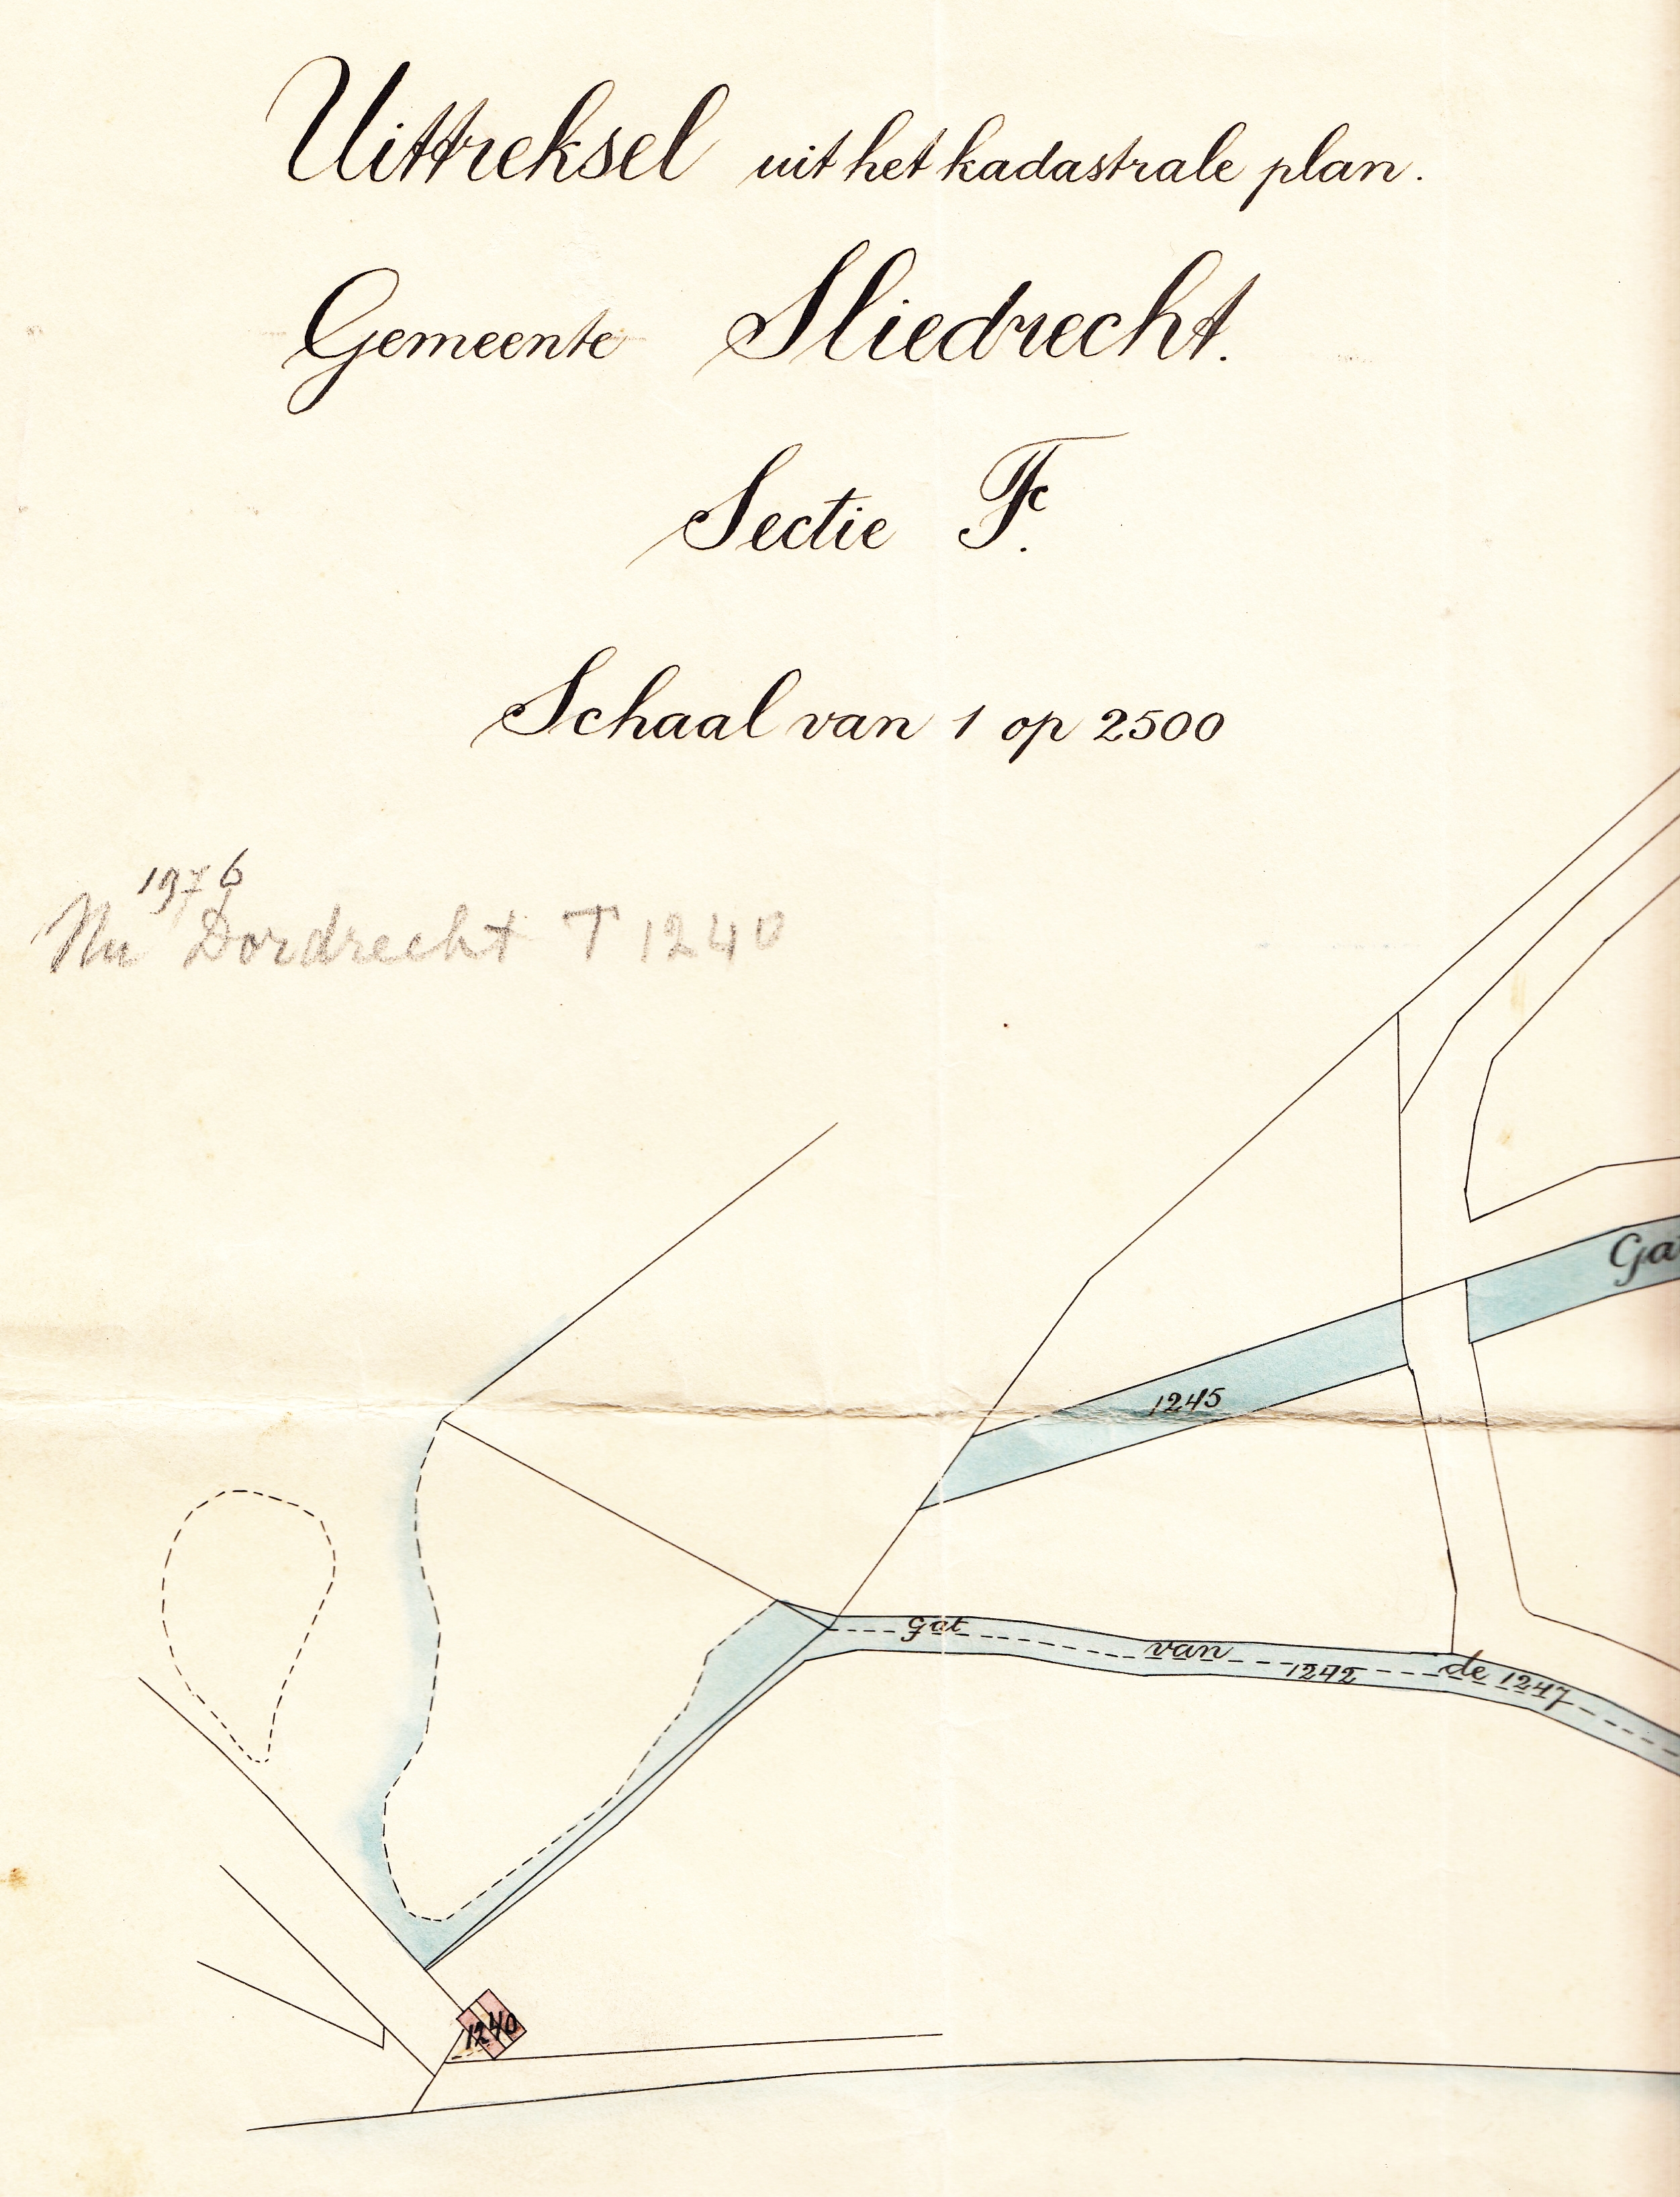 Uittreksel uit het kadastrale plan.
Gemeente Sliedrecht.
Sectie F.
Schaal van 1 op 2500
1976
Nu Dordrecht T 1240
Ga
1245
gat van de
1242
1247
1240